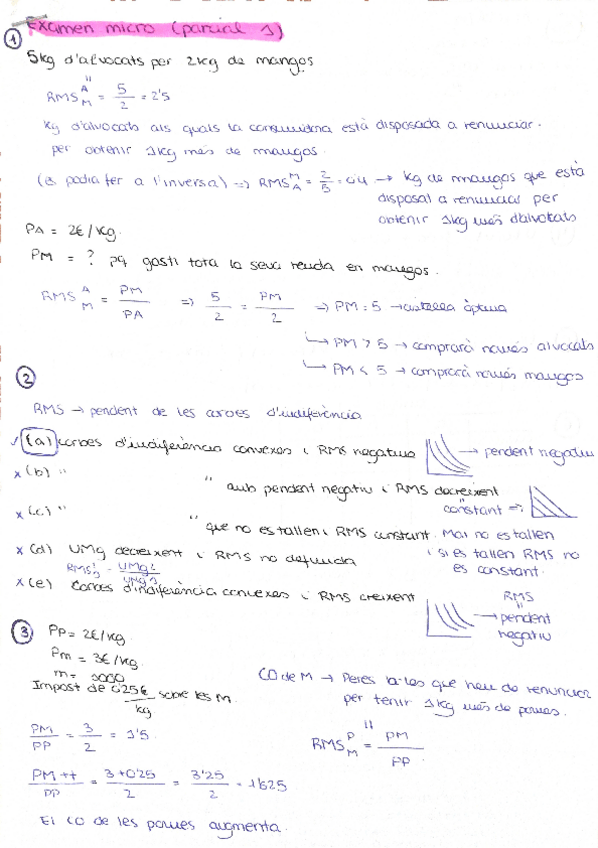 Examen micro (parcial 1)
①
5kg d'alvocats per 2kg de mangos
"
RMS A M = 5/2 = 2'5
Kg d'alvocats als quals la consumidora està disposada a renunciar.
per obtenir 1kg més de mangos.
(es podria fer a l'inversa) => RMS M A = 2/5 = 0'4 → kg de mangos que està
disposat a renunciar per
obtenir 1kg més d'alvocats
PA = 2€/kg.
PM = ? pq gasti tota la seva renda en mangos.
RMS A M = PM/PA => 5/2 = PM/2 => PM = 5 → cistella òptima
↳ PM > 5 → comprarà només alvocats
↳ PM < 5 → comprarà només mangos
②
RMS → pendent de les corbes d'indiferència
✓ (a) corbes d'indiferència convexes i RMS negativa → pendent negatiu
x (b) " " amb pendent negatiu i RMS decreixent
constant =>
x (c) " " que no es tallen i RMS constant. Mai no es tallen
i si es tallen RMS no
es constant.
x (d) UMg decreixent i RMS no definida
x (e) Corbes d'indiferència convexes i RMS creixent
RMS
→ pendent
negatiu
③ PP = 2€/kg.
Pm = 3€/kg.
m = 3000
Impost de 0'25€/kg sobre les M.
CO de M → Peres a les que heu de renunciar
per tenir 1kg més de pomes.
"
PM/PP = 3/2 = 1'5
RMS P M = PM/PP.
PM ++/PP = 3+0'25/2 = 3'25/2 = 1'625
El CO de les pomes augmenta.